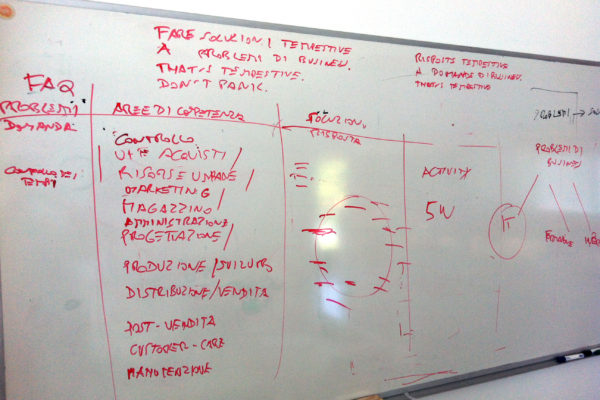 FARE SOLUZIONI TEMPESTIVE
A PROBLEMI DI BUSINESS.
THAT'S TEMPESTIVE.
DON'T PANIC.
RISPOSTE TEMPESTIVE
A DOMANDE DI BUSINESS.
THAT'S TEMPESTIVE
FAQ
PROBLEMI
DOMANDA
AREE DI COMPETENZA
SOLUZIONI
RISPOSTA
PROBLEMI →
CONTROLLO
ACQUISTI
CONTROLLO DEI
TEMPI
RISORSE UMANE
MARKETING
MAGAZZINO
AMMINISTRAZIONE
PROGETTAZIONE
PRODUZIONE/SVILUPPO
DISTRIBUZIONE/VENDITA
POST-VENDITA
CUSTOMER-CARE
MANUTENZIONE
ACTIVITY
5W
PROBLEMI DI
BUSINESS
IT